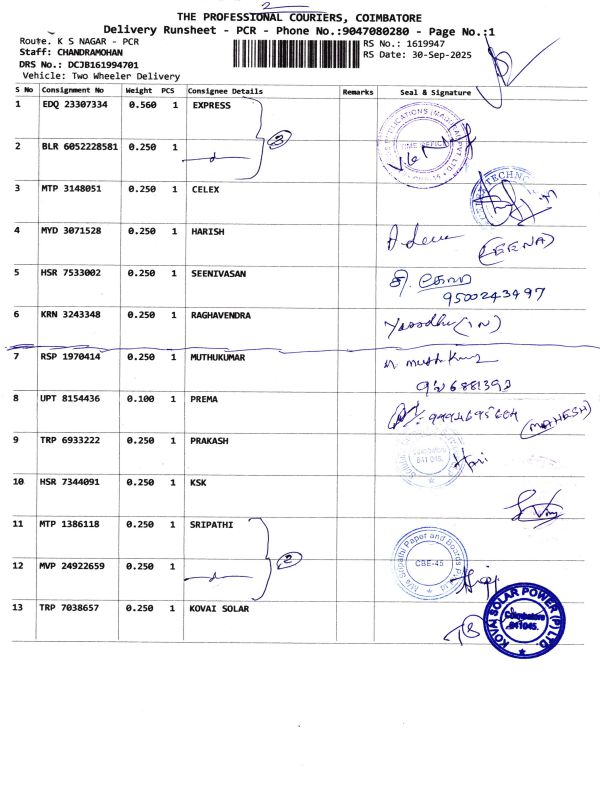 2
THE PROFESSIONAL COURIERS, COIMBATORE
Delivery Runsheet - PCR - Phone No.:9047080280 - Page No.:1
Route. K S NAGAR - PCR
Staff: CHANDRAMOHAN
DRS No.: DCJB161994701
Vehicle: Two Wheeler Delivery
RS No.: 1619947
RS Date: 30-Sep-2025
S No Consignment No Weight PCS Consignee Details Remarks Seal & Signature
1 EDQ 23307334 0.560 1 EXPRESS
3
2 BLR 6052228581 0.250 1
3 MTP 3148051 0.250 1 CELEX
4 MYD 3071528 0.250 1 HARISH
(LEENA)
5 HSR 7533002 0.250 1 SEENIVASAN
9500243497
6 KRN 3243348 0.250 1 RAGHAVENDRA
7 RSP 1970414 0.250 1 MUTHUKUMAR
8 UPT 8154436 0.100 1 PREMA
(MAHESH)
9 TRP 6933222 0.250 1 PRAKASH
Coimbatore
641 045.
Hari
10 HSR 7344091 0.250 1 KSK
11 MTP 1386118 0.250 1 SRIPATHI
2
Sripathi Paper and Boards
CBE-45
12 MVP 24922659 0.250 1
13 TRP 7038657 0.250 1 KOVAI SOLAR
KOVAI SOLAR POWER (P) LTD.
Coimbatore
641045.